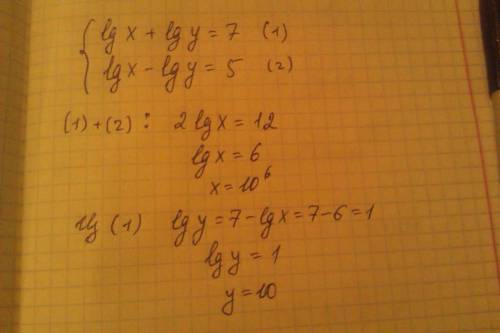 lg x + lg y = 7 (1)
lg x - lg y = 5 (2)
(1) + (2) : 2 lg x = 12
lg x = 6
x = 10⁶
Из (1) lg y = 7 - lg x = 7 - 6 = 1
lg y = 1
y = 10